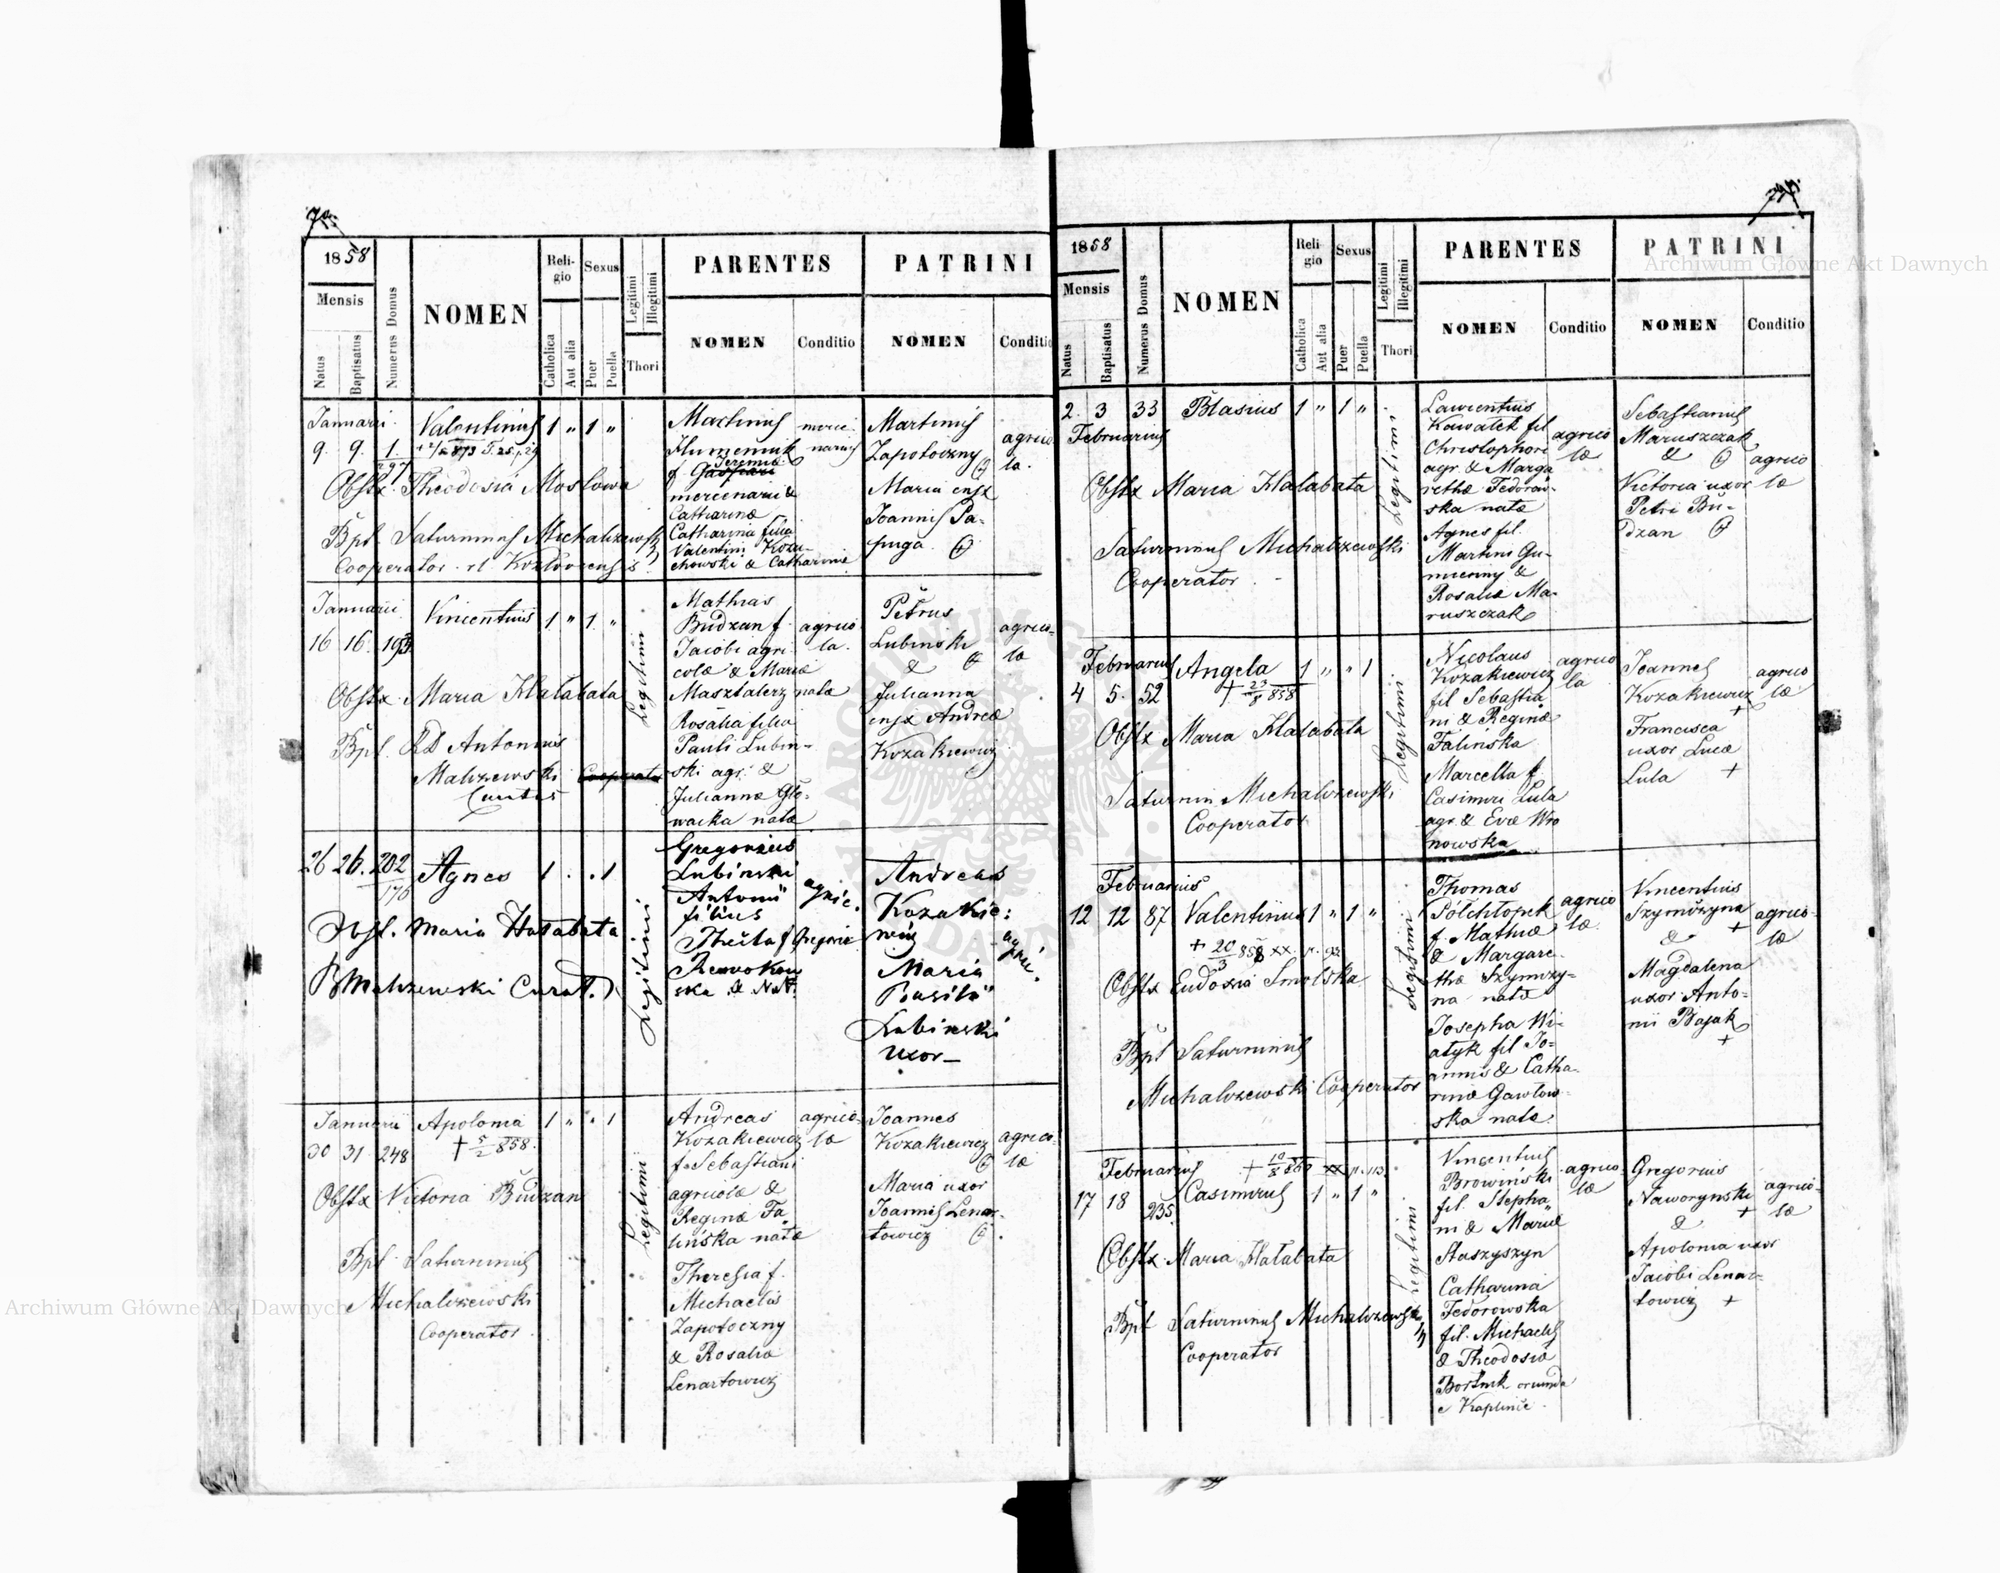 1858
Mensis
Natus
Baptisatus
Numerus Domus
NOMEN
Reli-
gio
Catholica
Aut alia
Sexus
Puer
Puella
Legitimi
Illegitimi
Thori
PARENTES
NOMEN
Conditio
PATRINI
NOMEN
Conditio
Januarii
9. 9. 1.
Valentinus 1 " 1 "
Obstx. Theodosia Mostowa
Bpt. Saturninus Michalczewski
Cooperator
Martinus
f. Jeremiae
mercenarii &
Catharinæ
Catharina filia
Valentini
chowski & Catharinæ
Martinus
Zapotoczny
Maria
Joannis Sa-
puga
agrico
la.
Januarii
16 16. 195
Vincentius 1 " 1 "
Obstx. Maria Hałabata
Bpt. RD Antonius
Malczewski Cooperator
Curatus
Legitimi
Mathias
Budzan f.
Jacobi agri-
colæ & Mariæ
Masztalerz natæ
Rosalia filia
Pauli Lubin-
ski agr. &
Juliannæ Glo-
wacka natæ
agrico
la.
Petrus
Lubinski
&
Julianna
Andreæ
Kozakiewicz
agrico-
læ
26 26. 202
176
Agnes 1 . . 1
Obst. Maria Hałabata
Malczewski Curat.
Legitimi
Gregorius
Lubinski
Antonii
filius
Thecla f. Gregorii
ska & Nat.
agric.
Andreas
Kozakie:
wicz
Maria
Basilii
Lubinski
Uxor
agric.
Januarii
30 31 248
Apolonia 1 " " 1
+ 5/2 858.
Obstx Victoria Budzan
Bpt. Saturninus
Michalczewski
Cooperator
Legitimi
Andreas
Kozakiewicz
f. Sebastiani
agricolæ &
Reginæ Ta
linska natæ
Theresia f.
Michaelis
Zapotoczny
& Rosaliæ
Lenartowicz
agrico-
læ
Joannes
Kozakiewicz
Maria uxor
Joannis Lenar-
towicz
agrico-
læ
1858
Mensis
Natus
Baptisatus
Numerus Domus
NOMEN
Reli-
gio
Catholica
Aut alia
Sexus
Puer
Puella
Legitimi
Illegitimi
Thori
PARENTES
NOMEN
Conditio
PATRINI
NOMEN
Conditio
2. 3 33 Blasius 1 " 1 "
Februarius
Obstx Maria Hałabata
Saturninus Michalczewski
Cooperator
Legitimi
Laurentius
Kawałek fil
Christophori
agr. & Marga
rethæ Fedorow-
ska natæ
Agnes fil.
Martini Gu-
mienny &
Rosaliæ Ma-
ruszczak
agrico
læ
Sebastianus
Maruszczak
&
Victoria uxor
Petri Bu-
dzan
agrico
læ
Februarius Angela 1 " " 1
4 5. 52
+ 23/8 858
Obstx Maria Hałabata
Saturnin. Michalczewski
Cooperator
Legitimi
Nicolaus
Kozakiewicz
fil Sebastia
ni & Reginæ
Talinska
Marcella f.
Casimiri Lula
agr. & Evæ Wro
nowska
agrico
la
Joannes
Kozakiewicz
+
Francisca
uxor Lucæ
Lula +
agrico
læ
Februarius
12 12 87 Valentinus 1 " 1 "
Obstx Eudoxia Smolska
Bpt Saturninus
Michalczewski Cooperator
Legitimi
Thomas
Półchłopek
f. Mathiæ
& Margare-
thæ Szymczy-
na natæ
Josepha Wi-
atyk fil Jo-
annis & Catha-
rinæ Gawłow-
ska natæ
agrico
læ.
Vincentius
Szymczyna
+
&
Magdalena
uxor Anto-
nii Bajak
+
agrico-
læ
Februarius
17 18 235 Casimirus 1 " 1 "
Obstx Maria Hałabata
Bpt Saturninus Michalczewski
Cooperator
Legitimi
Vincentius
Browiński
fil. Stepha
ni & Mariæ
Staszyszyn
Catharina
Fedorowska
fil. Michaelis
& Theodosiæ
Bortnik oriunda
agrico
læ
Gregorius
Naworynski
& +
Apolonia uxor
Jacobi Lenar-
towicz +
agrico-
læ
Archiwum Główne Akt Dawnych
Archiwum Główne Akt Dawnych